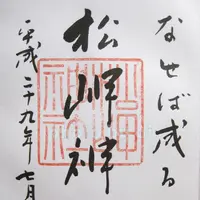 なせば成る
松岬神社
平成二十九年七月